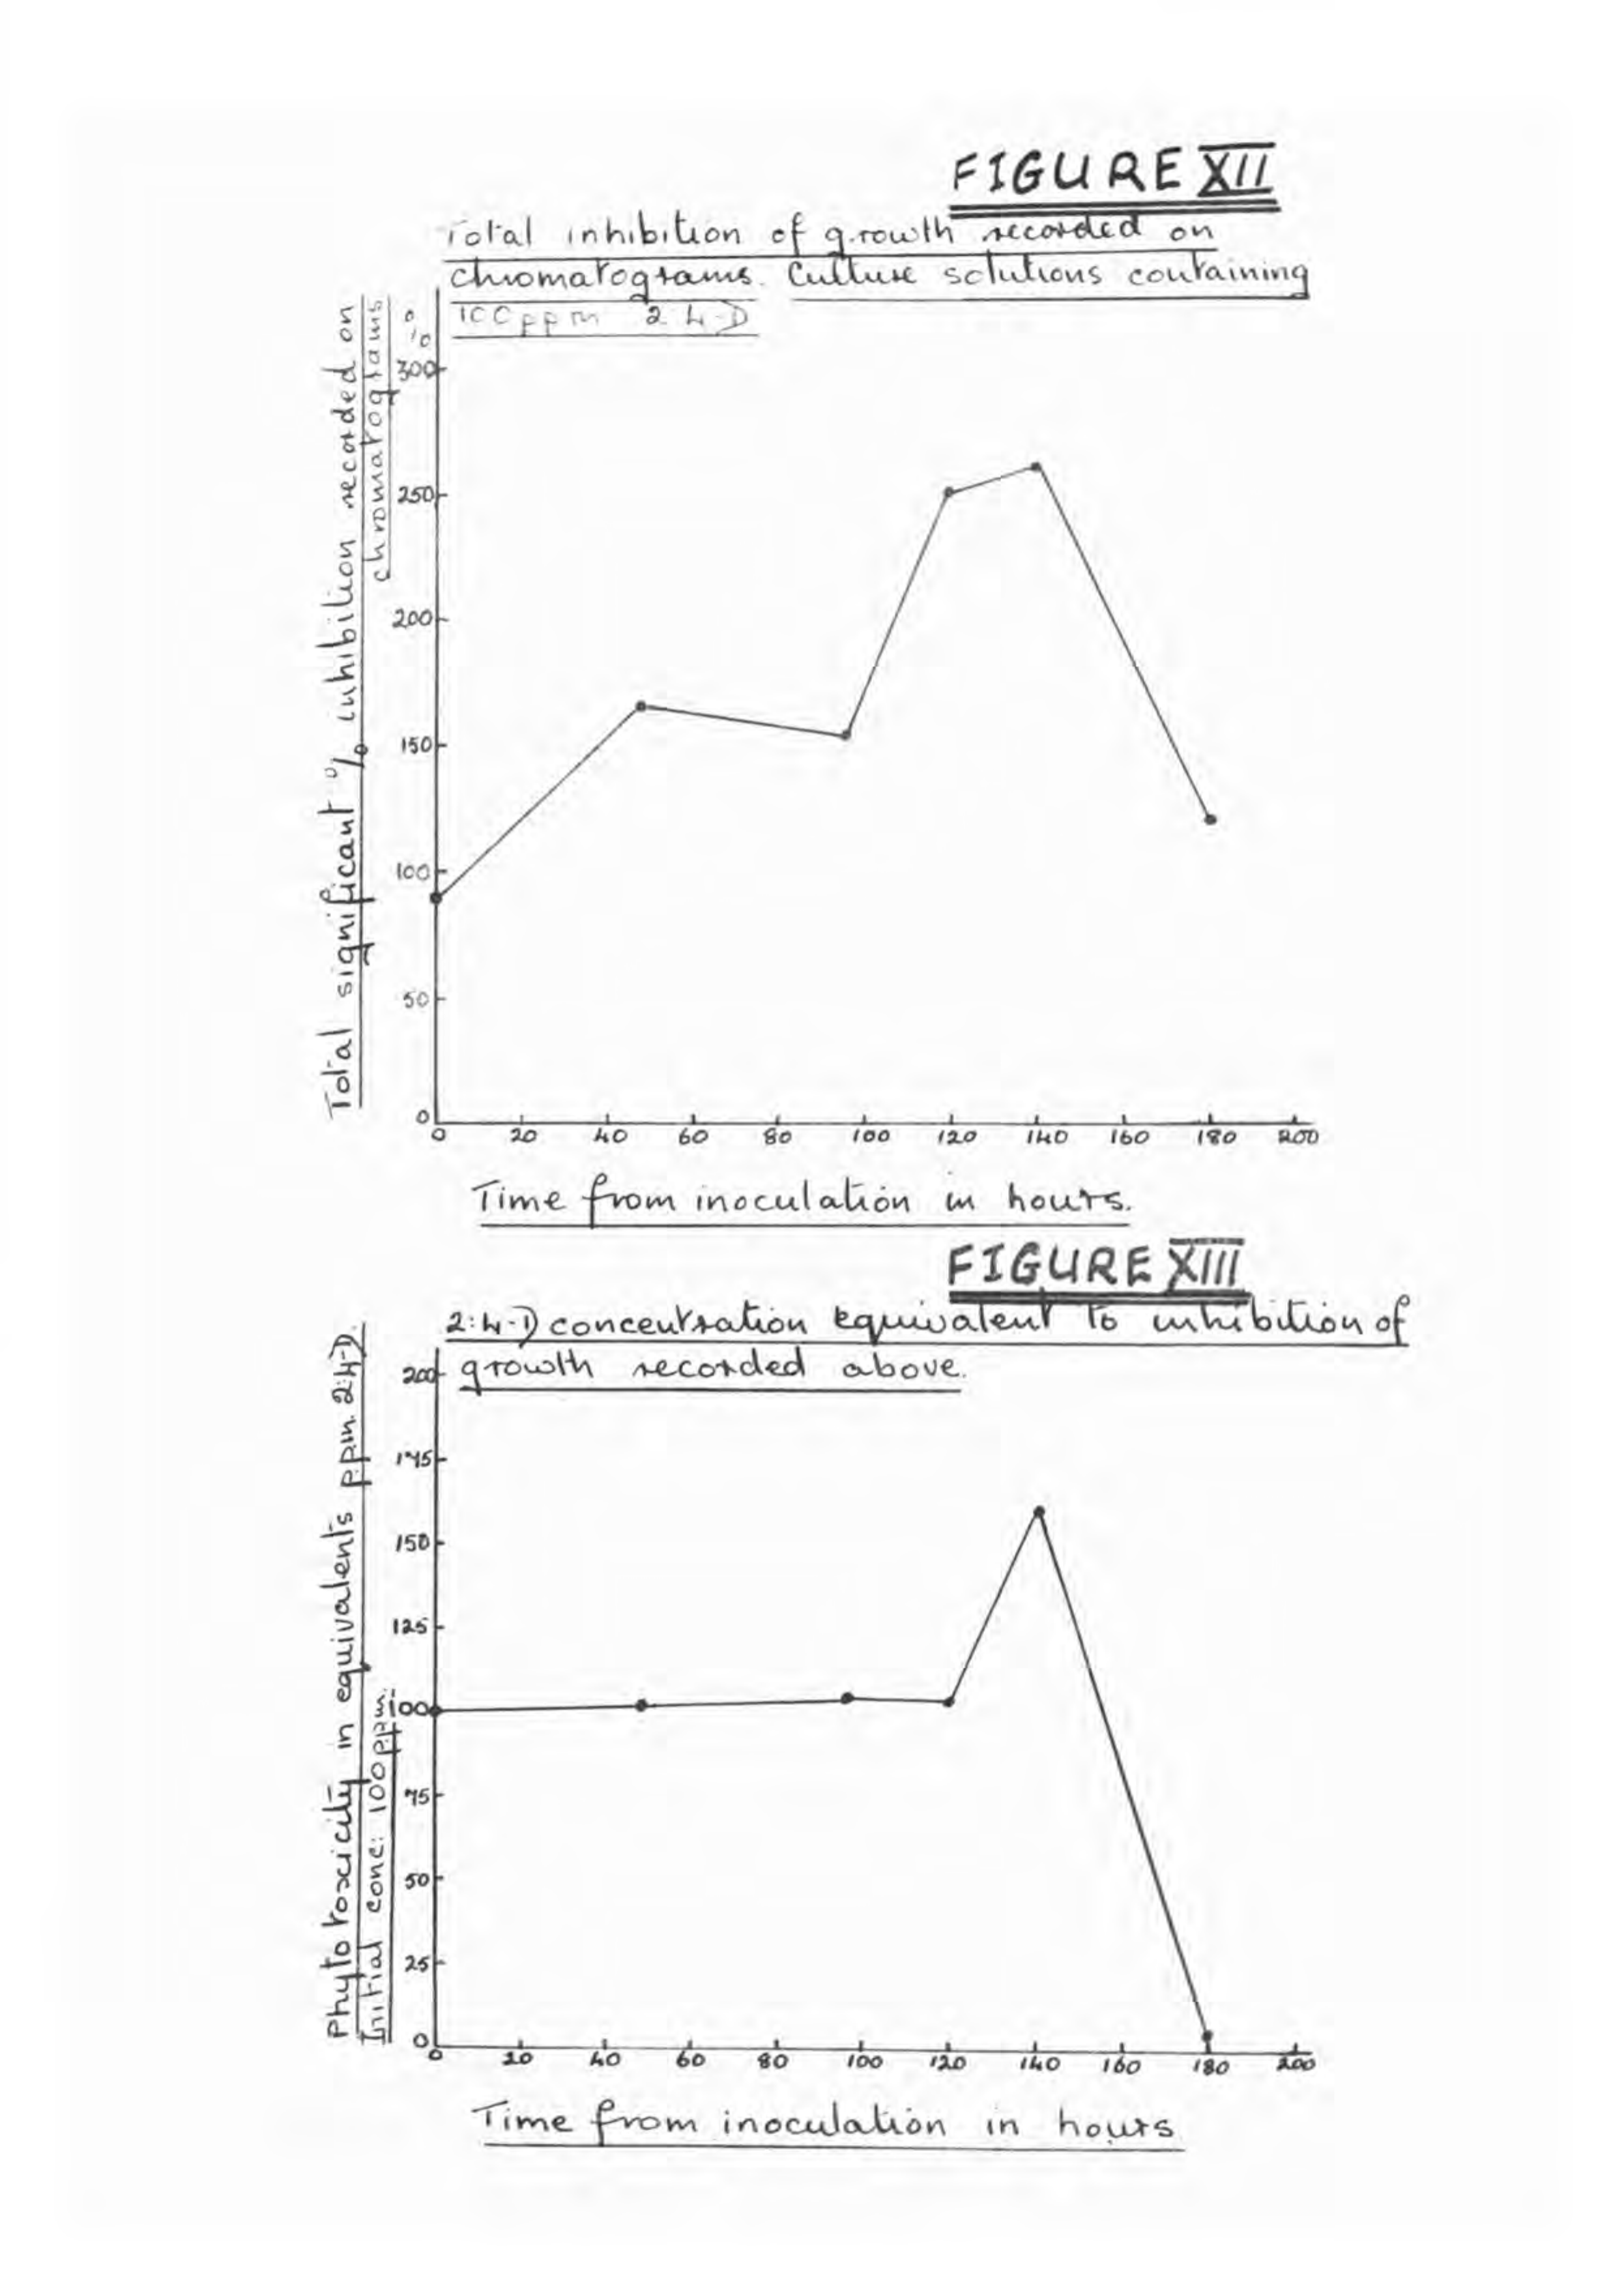 FIGURE XII
Total inhibition of growth recorded on
chromatograms. Culture solutions containing
100ppm 2.4-D
Total significant % inhibition recorded on
chromatograms
%
300
250
200
150
100
50
0
0 20 40 60 80 100 120 140 160 180 200
Time from inoculation in hours.
FIGURE XIII
2:4-D concentration equivalent to inhibition of
growth recorded above.
Phytotoxicity in equivalents p.p.m. 2:4-D.
Initial conc: 100p.p.m.
200
175
150
125
100
75
50
25
0
0 20 40 60 80 100 120 140 160 180 200
Time from inoculation in hours